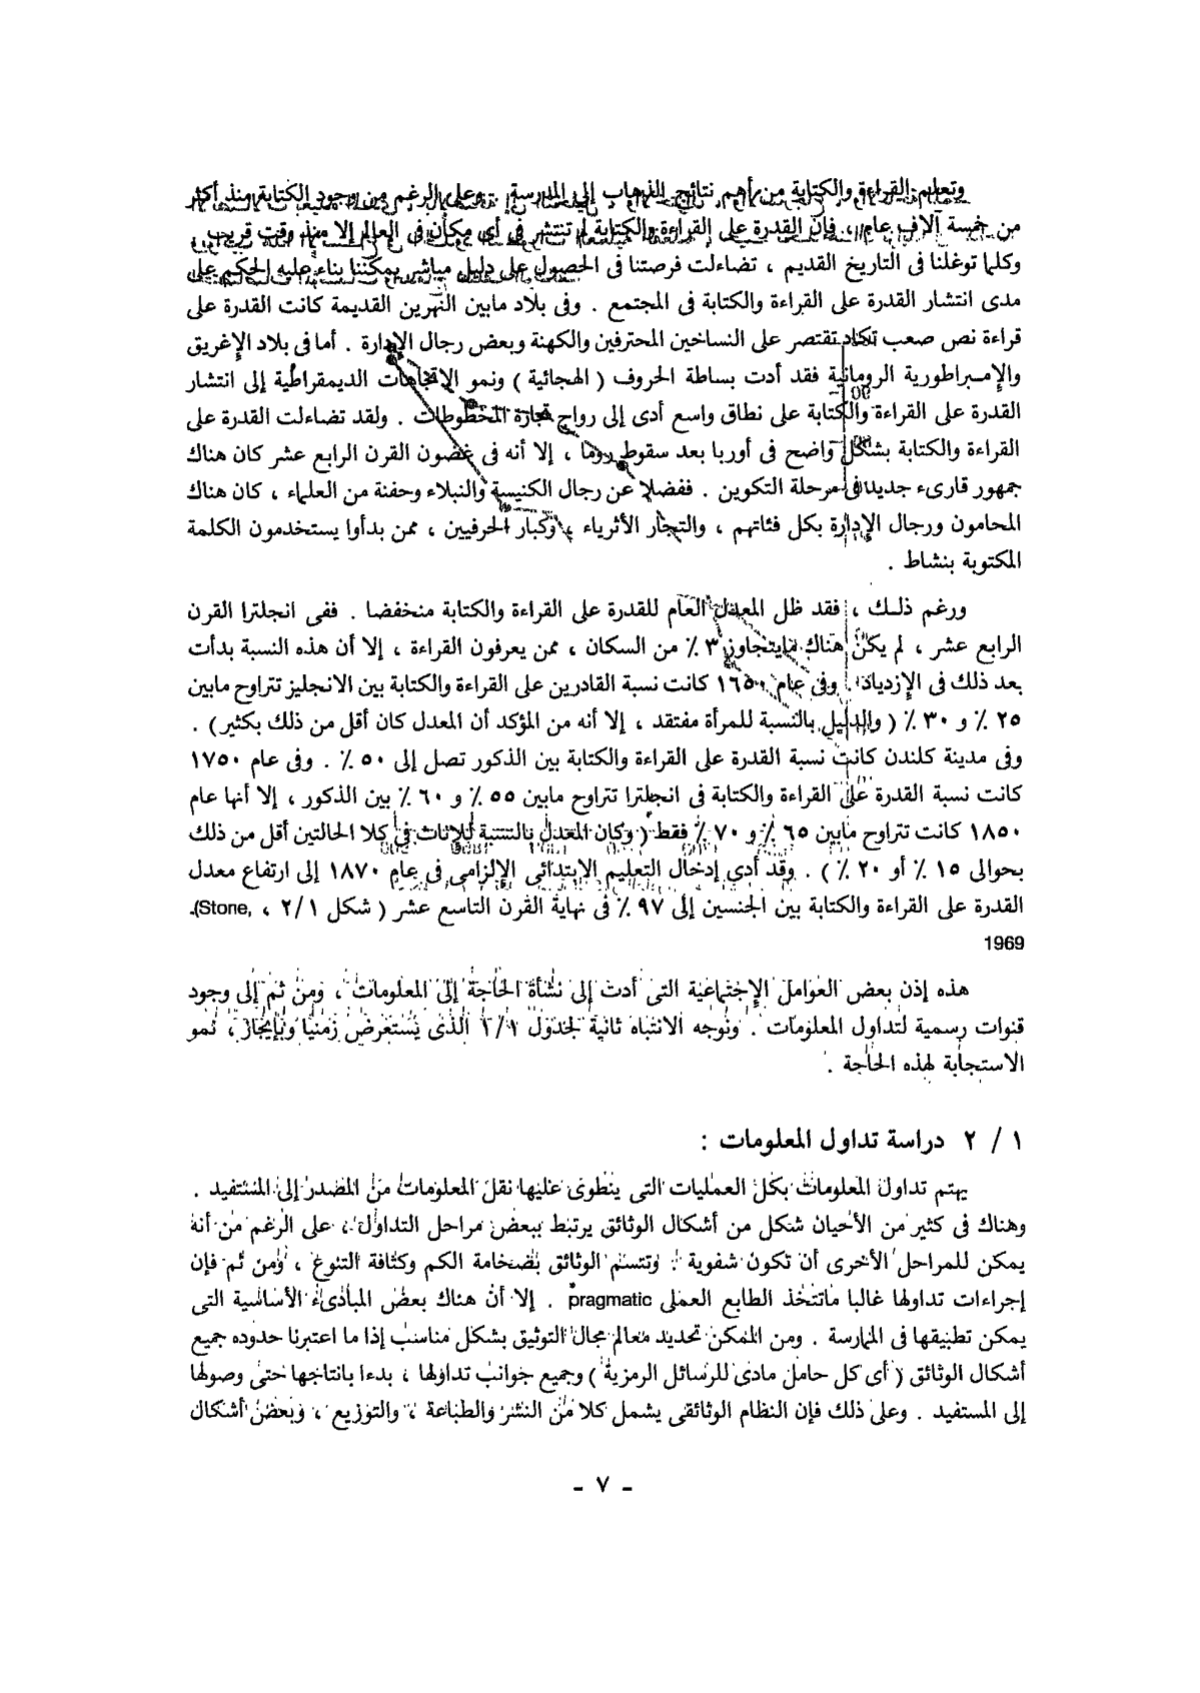 وتعلم القراءة والكتابة من أهم نتائج الذهاب إلى المدرسة . وعلى الرغم من وجود الكتابة منذ أكثر
من خمسة آلاف عام ، فإن القدرة على القراءة والكتابة لم تنتشر فى أى مكان فى العالم إلا منذ وقت قريب .
وكلما توغلنا فى التاريخ القديم ، تضاءلت فرصتنا فى الحصول على دليل مباشر يمكننا بناء عليه الحكم على
مدى انتشار القدرة على القراءة والكتابة فى المجتمع . وفى بلاد مابين النهرين القديمة كانت القدرة على
قراءة نص صعب تكاد تقتصر على النساخين المحترفين والكهنة وبعض رجال الإدارة . أما فى بلاد الإغريق
والإمبراطورية الرومانية فقد أدت بساطة الحروف ( الهجائية ) ونمو الاتجاهات الديمقراطية إلى انتشار
القدرة على القراءة والكتابة على نطاق واسع أدى إلى رواج تجارة المخطوطات . ولقد تضاءلت القدرة على
القراءة والكتابة بشكل واضح فى أوربا بعد سقوط روما ، إلا أنه فى غضون القرن الرابع عشر كان هناك
جمهور قارىء جديد فى مرحلة التكوين . ففضلا عن رجال الكنيسة والنبلاء وحفنة من العلماء ، كان هناك
المحامون ورجال الإدارة بكل فئاتهم ، والتجار الأثرياء ، وكبار الحرفيين ، ممن بدأوا يستخدمون الكلمة
المكتوبة بنشاط .
ورغم ذلك ، فقد ظل المعدل العام للقدرة على القراءة والكتابة منخفضا . ففى انجلترا القرن
الرابع عشر ، لم يكن هناك مايتجاوز ٣ ٪ من السكان ، ممن يعرفون القراءة ، إلا أن هذه النسبة بدأت
بعد ذلك فى الإزدياد . وفى عام ١٦٥٠ كانت نسبة القادرين على القراءة والكتابة بين الانجليز تتراوح مابين
٢٥ ٪ و ٣٠ ٪ ( والدليل بالنسبة للمرأة مفتقد ، إلا أنه من المؤكد أن المعدل كان أقل من ذلك بكثير ) .
وفى مدينة كلندن كانت نسبة القدرة على القراءة والكتابة بين الذكور تصل إلى ٥٠ ٪ . وفى عام ١٧٥٠
كانت نسبة القدرة على القراءة والكتابة فى انجلترا تتراوح مابين ٥٥ ٪ و ٦٠ ٪ بين الذكور ، إلا أنها عام
١٨٥٠ كانت تتراوح مابين ٦٥ ٪ و ٧٠ ٪ فقط ( وكان المعدل بالنسبة للإناث فى كلا الحالتين أقل من ذلك
بحوالى ١٥ ٪ أو ٢٠ ٪ ) . وقد أدى إدخال التعليم الابتدائى الإلزامى فى عام ١٨٧٠ إلى ارتفاع معدل
القدرة على القراءة والكتابة بين الجنسين إلى ٩٧ ٪ فى نهاية القرن التاسع عشر ( شكل ٢/١ ، Stone,).
1969
هذه إذن بعض العوامل الإجتماعية التى أدت إلى نشأة الحاجة إلى المعلومات ، ومن ثم إلى وجود
قنوات رسمية لتداول المعلومات . ونوجه الانتباه ثانية لجدول ٢/١ الذى يستعرض زمنيا وبإيجاز ، نمو
الاستجابة لهذه الحاجة .
١ / ٢ دراسة تداول المعلومات :
يهتم تداول المعلومات بكل العمليات التى ينطوى عليها نقل المعلومات من المصدر إلى المستفيد .
وهناك فى كثير من الأحيان شكل من أشكال الوثائق يرتبط ببعض مراحل التداول ، على الرغم من أنه
يمكن للمراحل الأخرى أن تكون شفوية . وتتسم الوثائق بضخامة الكم وكثافة التنوع ، ومن ثم فإن
إجراءات تداولها غالبا ماتتخذ الطابع العملى pragmatic . إلا أن هناك بعض المبادىء الأساسية التى
يمكن تطبيقها فى الممارسة . ومن الممكن تحديد معالم مجال التوثيق بشكل مناسب إذا ما اعتبرنا حدوده جميع
أشكال الوثائق ( أى كل حامل مادى للرسائل الرمزية ) وجميع جوانب تداولها ، بدءا بانتاجها حتى وصولها
إلى المستفيد . وعلى ذلك فإن النظام الوثائقى يشمل كلا من النشر والطباعة ، والتوزيع ، وبعض أشكال
- ٧ -